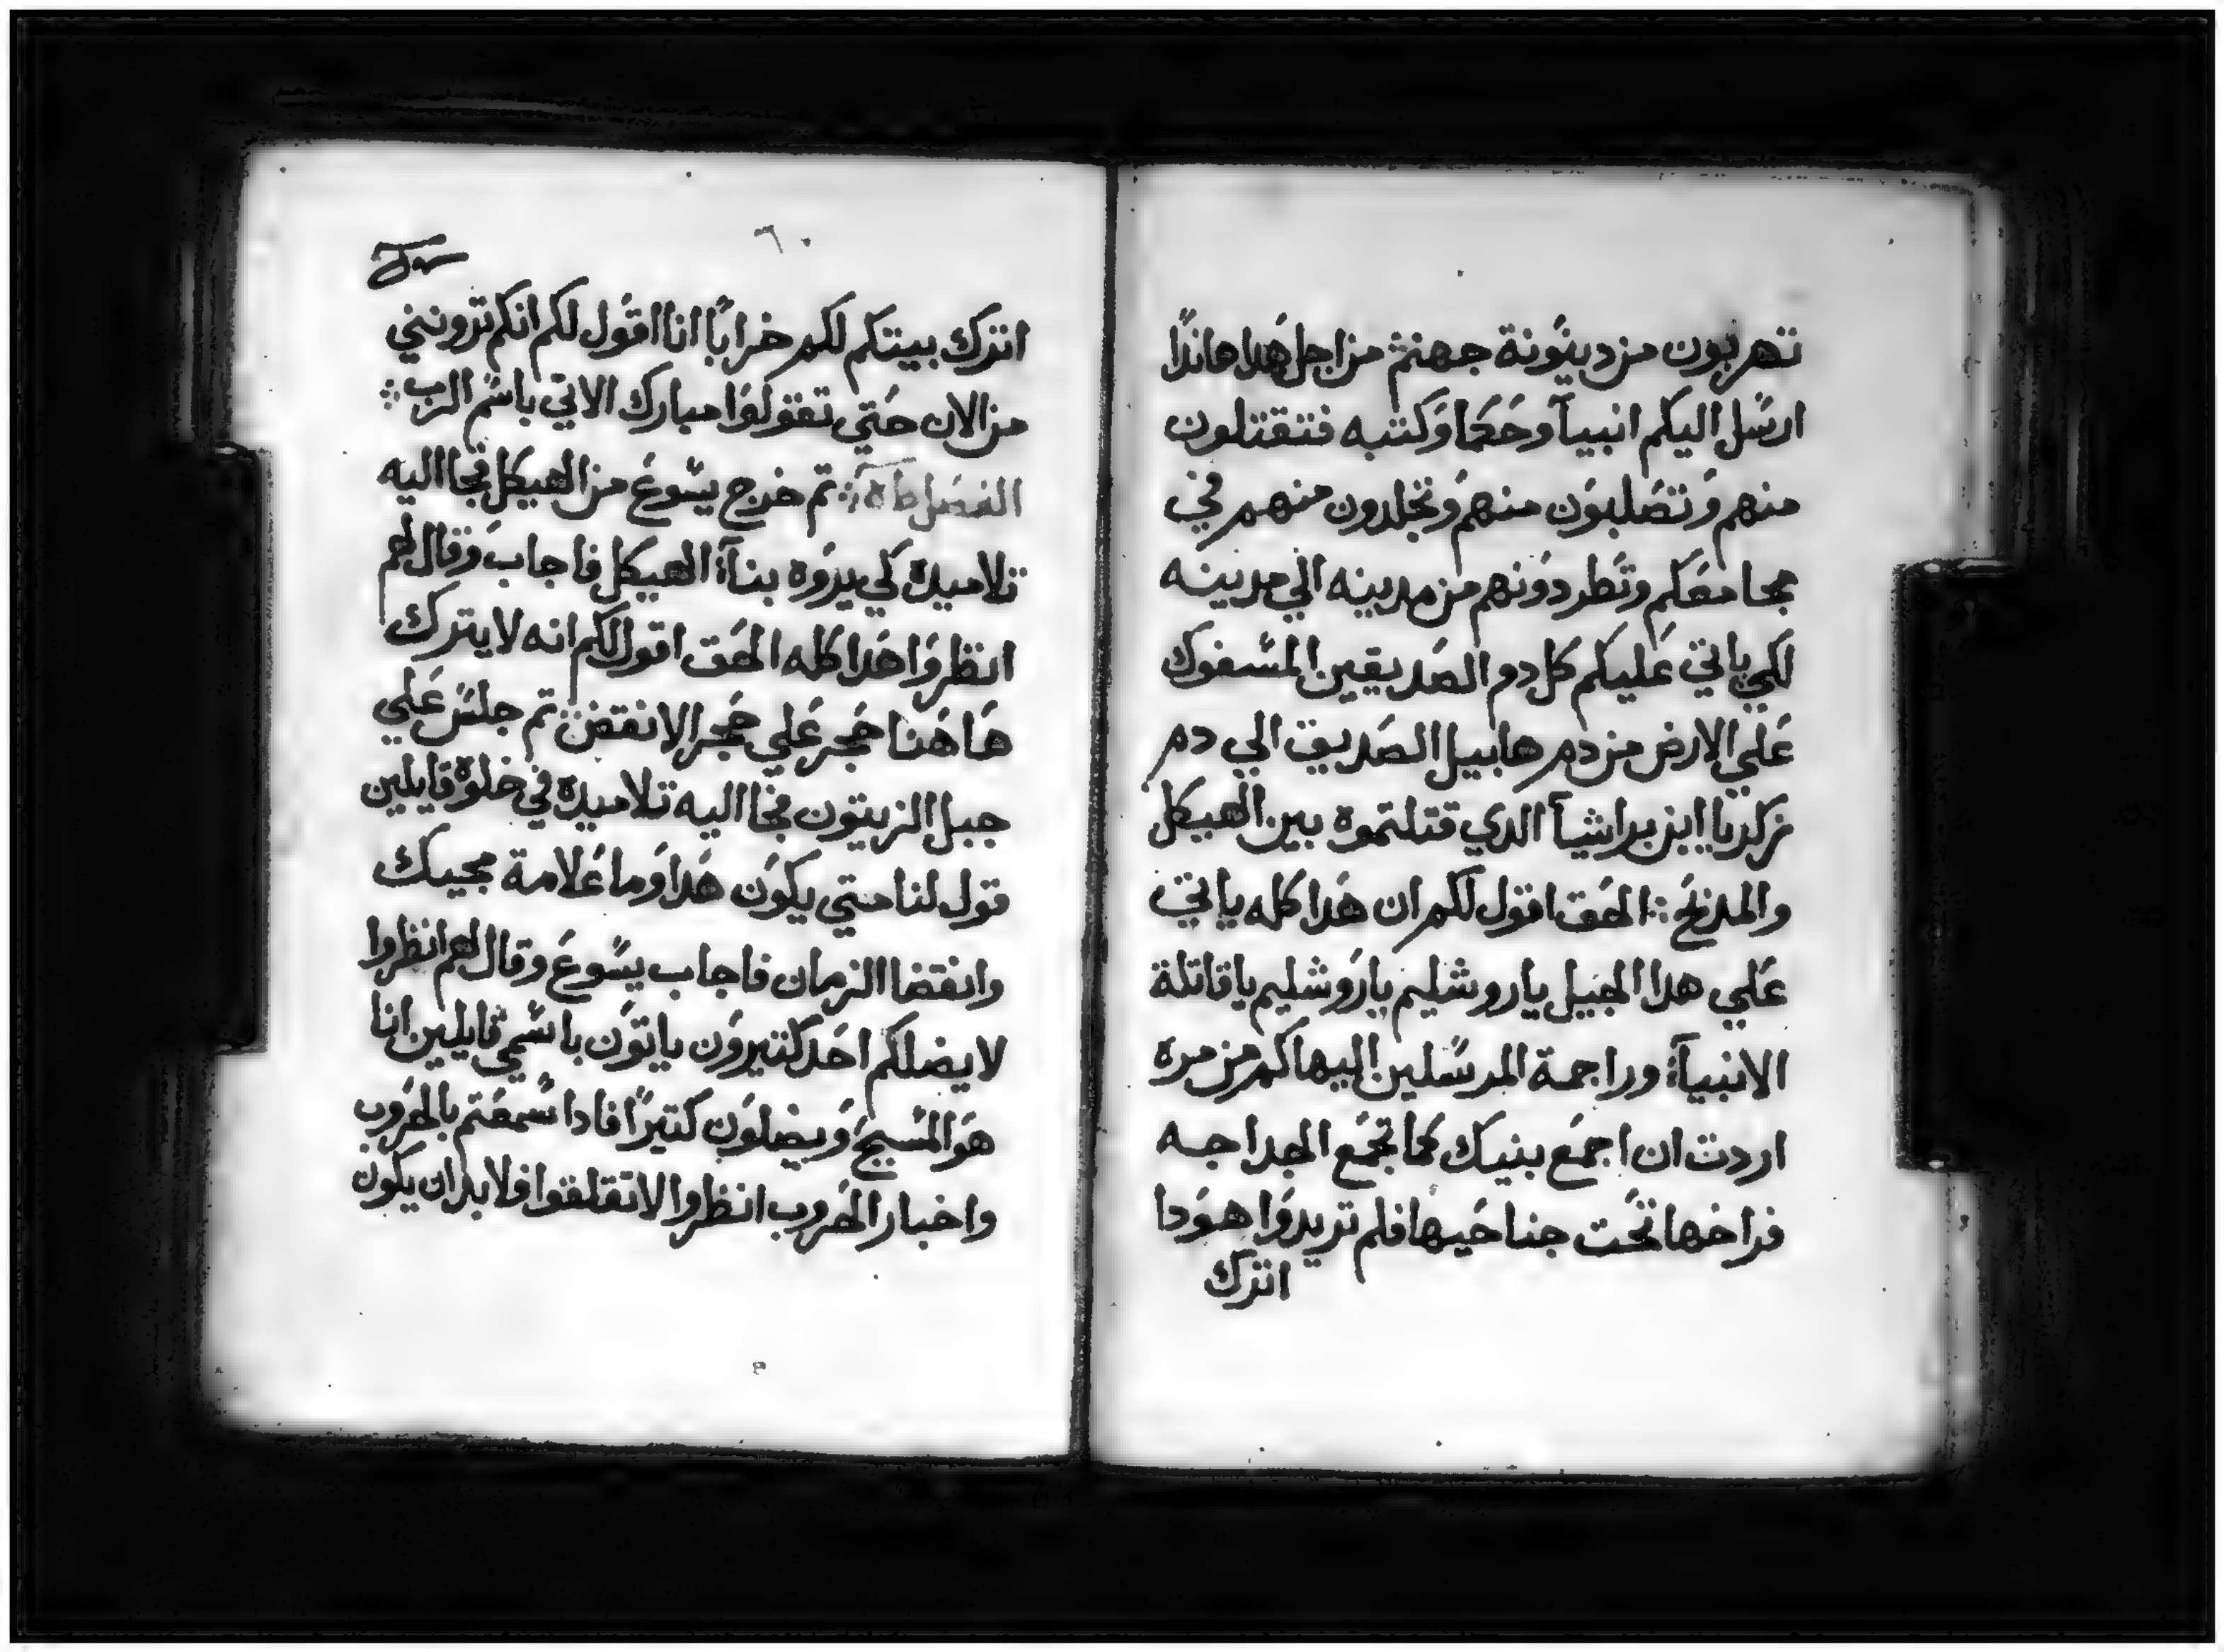 تهربون من دينونة جهنم من اجل هدا هاندا
ارسل اليكم انبيآ وحكما وكتبه فتقتلون
منهم وتصلبون منهم وتجلدون منهم في
مجامعكم وتطردونهم من مدينه الي مدينه
لكي ياتي عليكم كل دم الصديقين المسفوك
علي الارض من دم هابيل الصديق الي دم
زكريا ابن براشيآ الدي قتلتموه بين الهيكل
والمدبح ❖ الحق اقول لكم ان هدا كله ياتي
علي هدا الجيل يا روشليم يا روشليم يا قاتلة
الانبيآء وراجمة المرسلين اليها كم من مره
اردت ان اجمع بنيك كما تجمع الجداجه
فراخها تحت جناحيها فلم تريدوا هودا
اترك
٦٠
اترك بيتكم لكم خراباً انا اقول لكم انكم ترونني
من الان حتي تقولوا مبارك الاتي باسم الرب ❖
الفصل ❖ تم خرج يسوع من الهيكل فجا اليه
تلاميده لكي يروه بنآء الهيكل فاجاب وقال لهم
انظروا هدا كله الحق اقول لكم انه لا يترك
هاهنا حجر علي حجر الا نقض ❖ تم جلس علي
جبل الزيتون فجا اليه تلاميده في خلوة قايلين
قول لنا متي يكون هدا وما علامة مجيك
وانقضا الزمان فاجاب يسوع وقال لهم انظروا
لا يضلكم احد كتيرون ياتون باسمي قايلين انا
هو المسيح ويضلون كتيراً فادا سمعتم بالحروب
واخبار الحروب انظروا لا تقلقوا فلا بد ان يكون